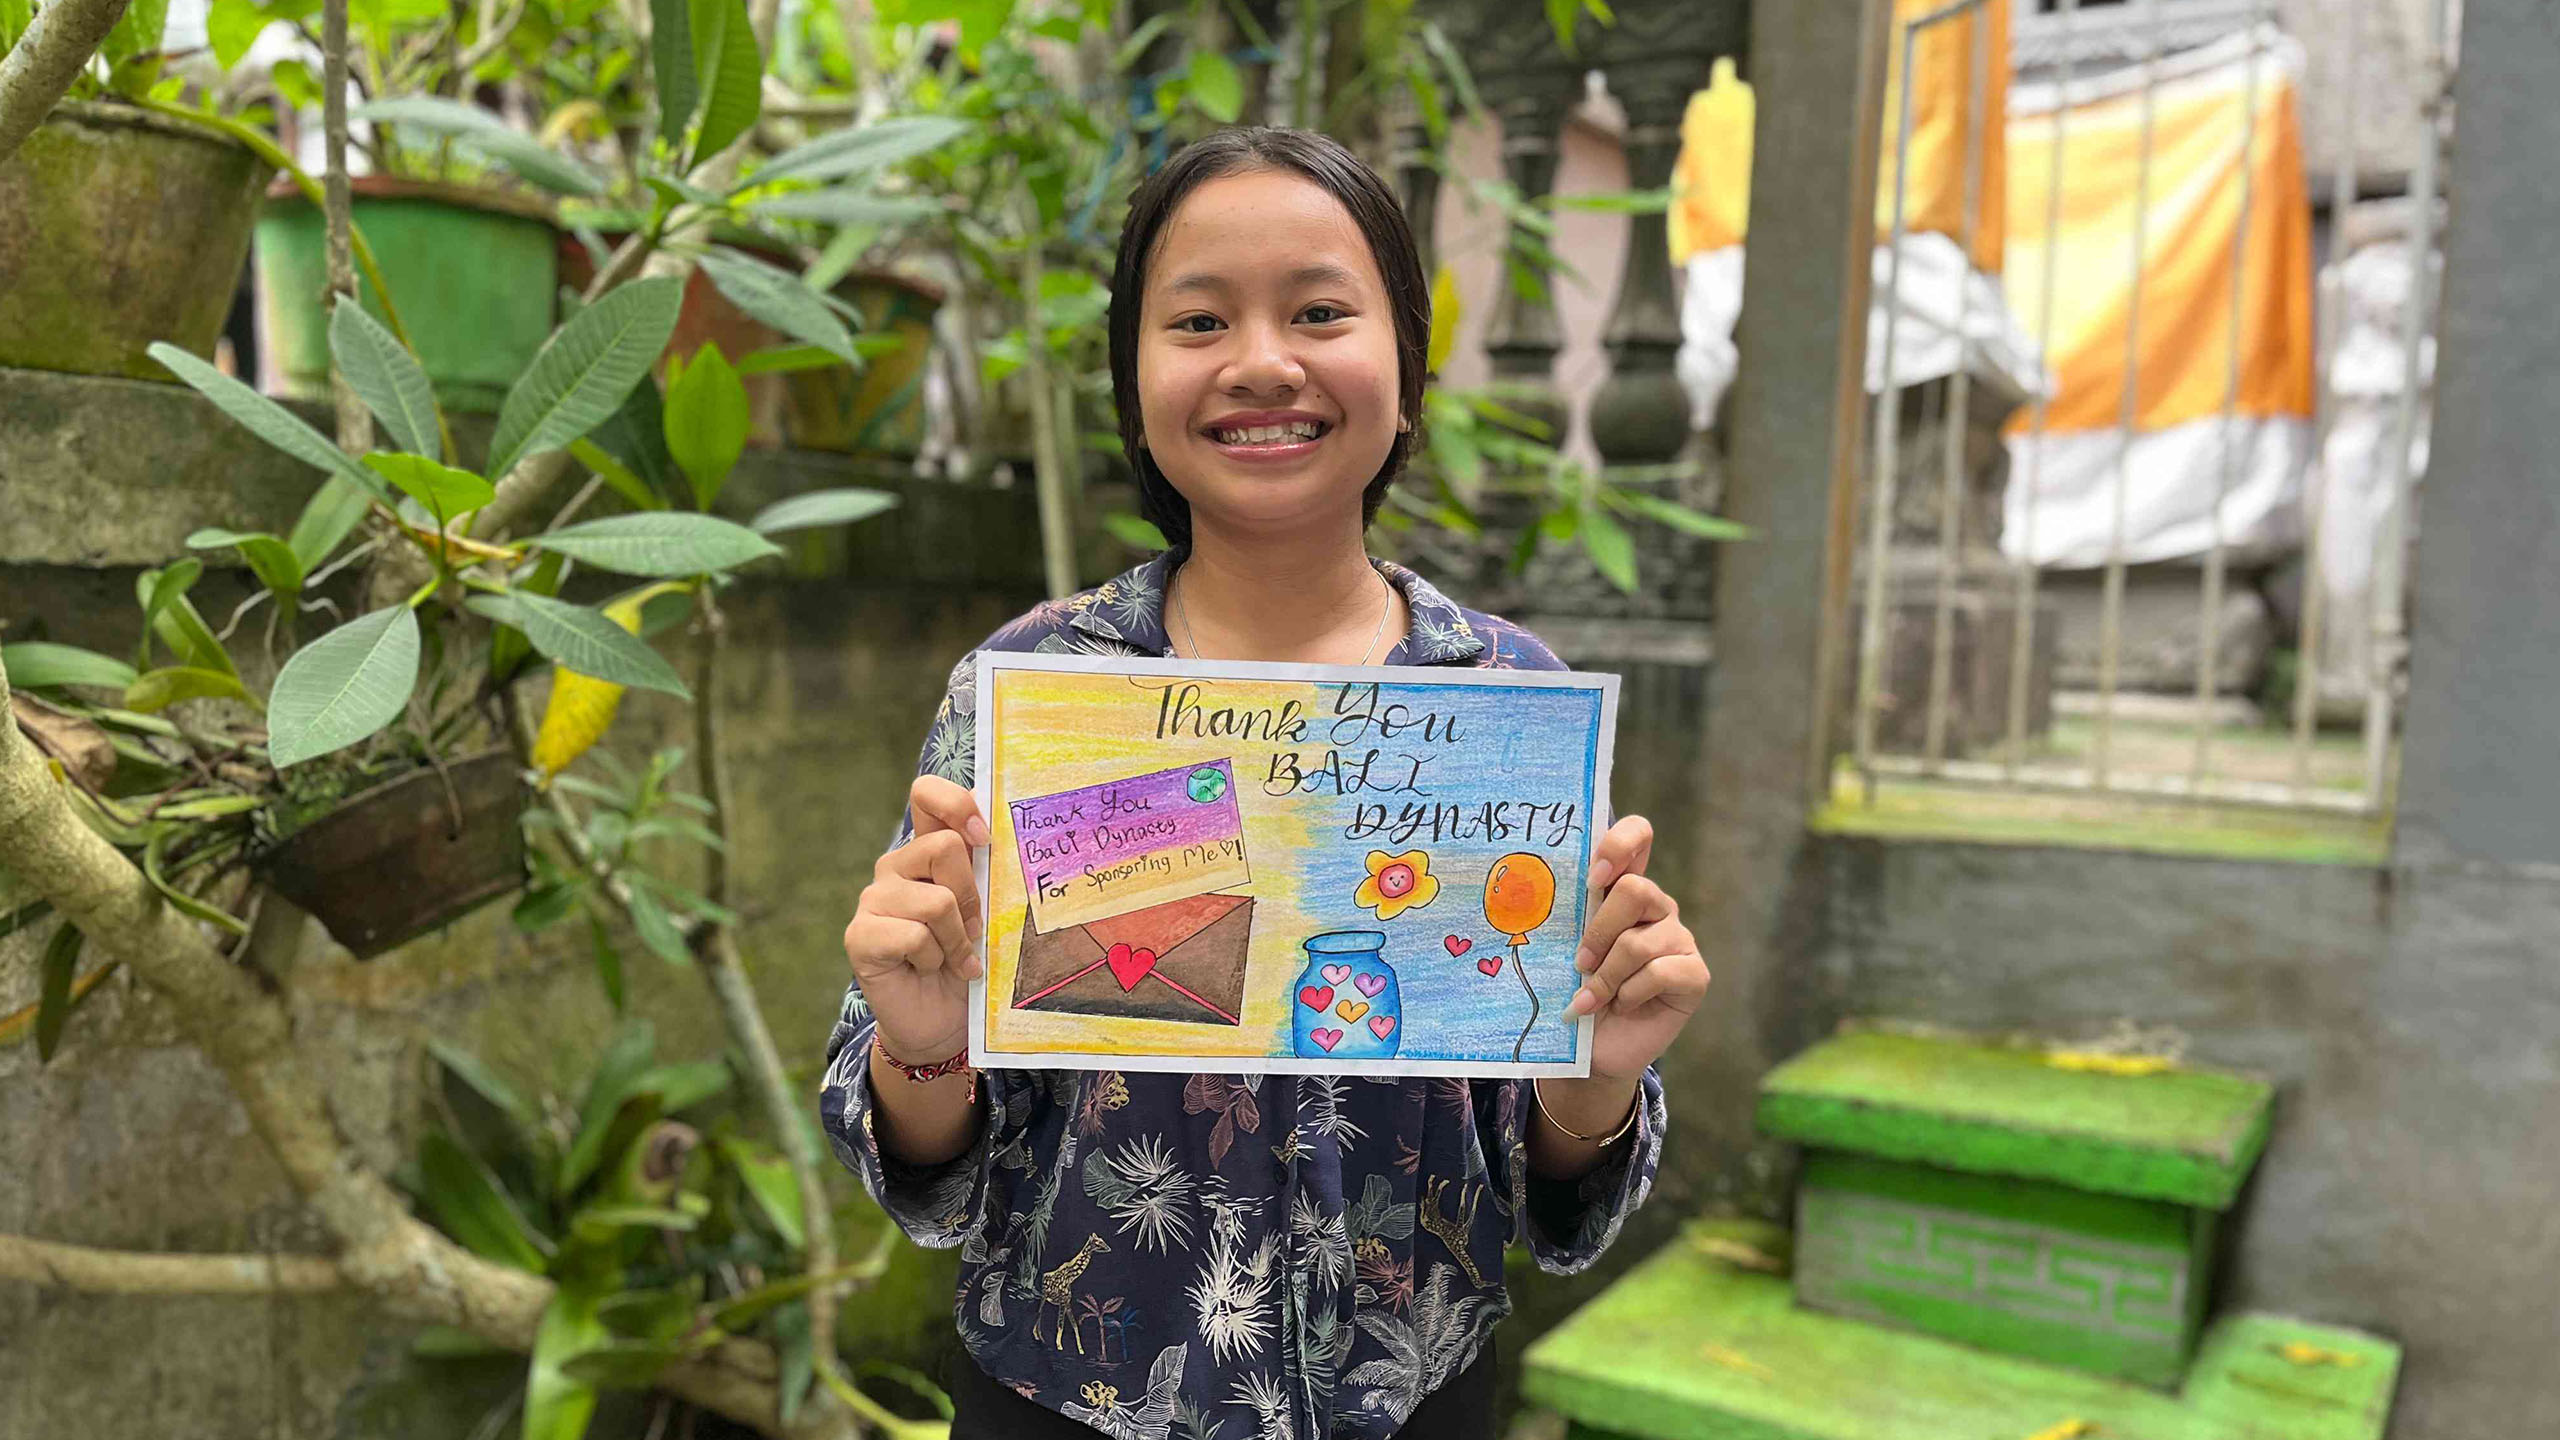 Thank You
BALI
DYNASTY
Thank You
Bali Dynasty
For Sponsoring Me♡!